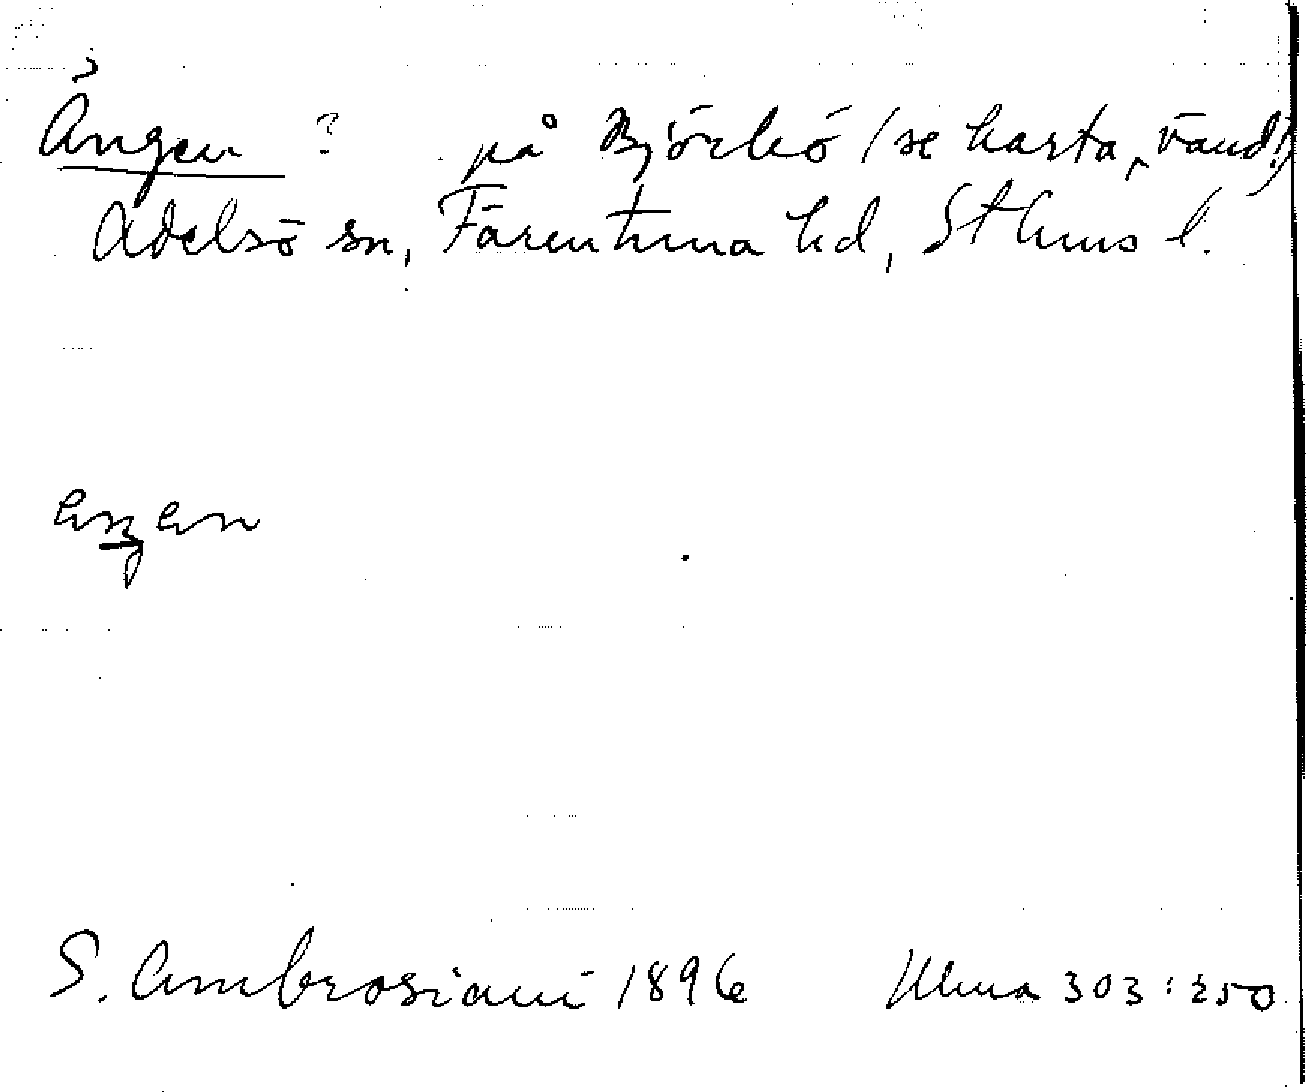 Ängen ? på Björkö (se karta, vänd!)
Adelsö sn, Färentuna hd, Sthms l.
S. Ambrosiani 1896 Ulma 303:250